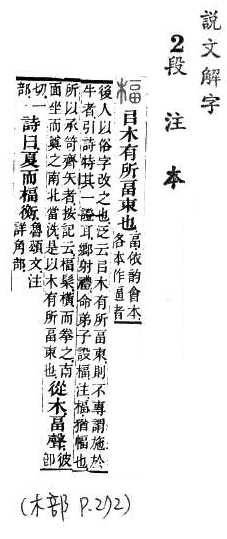 說文解字
2段注本
楅㠯木有所畐束也畐依韵會本各本作逼者
後人以俗字改之也泛云㠯木有所畐束則不專謂施於
牛者引詩特其一證耳鄉射禮命弟子設楅注楅猶幅也
所以承笴齊矢者按記云楅髤橫而拳之南
面坐而奠之南北當洗是以木有所畐束也從木畐聲彼卽
切一部詩曰夏而楅衡魯頌文注詳角部
(木部 P.272)